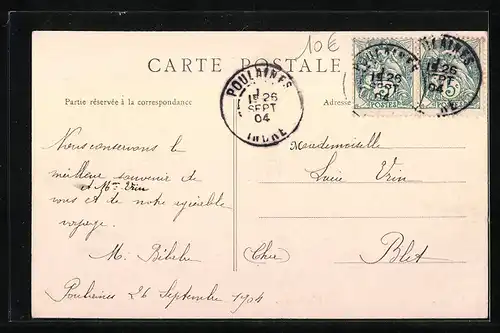 10€
CARTE POSTALE
POULAINES
1E 26
SEPT
04
INDRE
POULAINES
1E 26
SEPT
04
POSTES
5c
POULAINES
1E 26
SEPT
04
5c
Partie réservée à la correspondance
Adresse
Nous conservons le
meilleur souvenir de
et Mme Vrin
vous et de notre agréable
voyage.
M.
Poulaines 26 Septembre 1904
Mademoiselle
Lucie Vrin
Blet
Cher